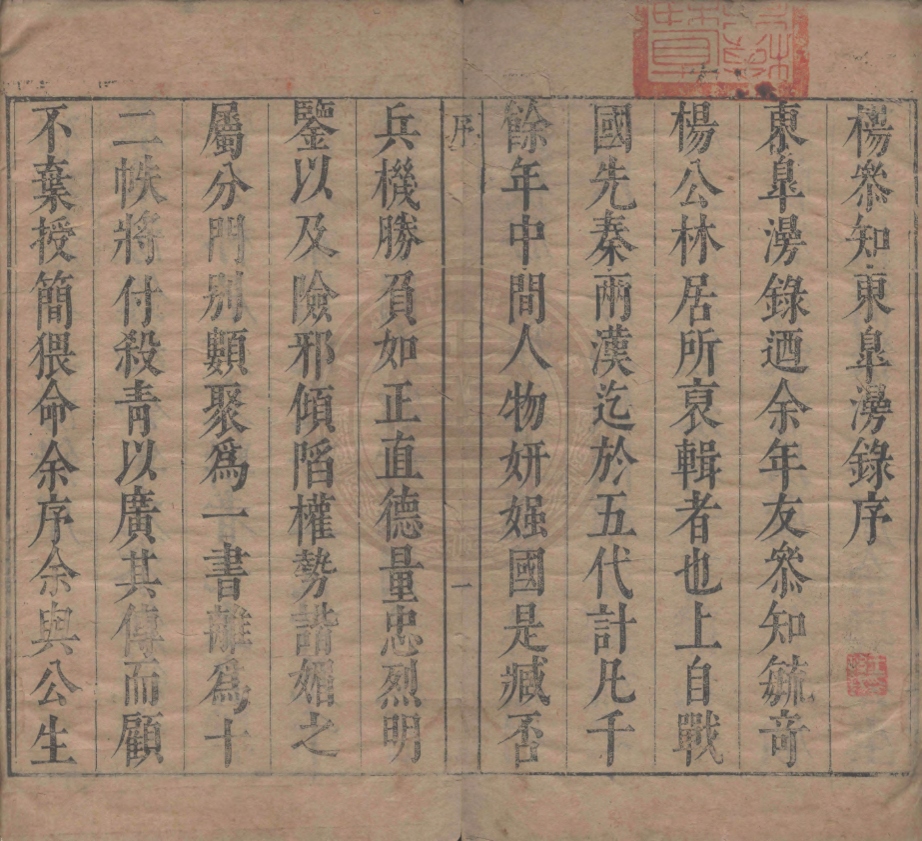 楊叅知東臯漫錄序
東臯漫錄迺余年友叅知毓竒
楊公林居所裒輯者也上自戰
國先秦兩漢迄於五代計凡千
餘年中間人物妍媸國是臧否
序
一
兵機勝負如正直德量忠烈明
鑒以及險邪傾䧟權勢諧媚之
屬分門別類聚爲一書離爲十
二帙將付殺青以廣其傳而顧
不棄授簡猥命余序余與公生